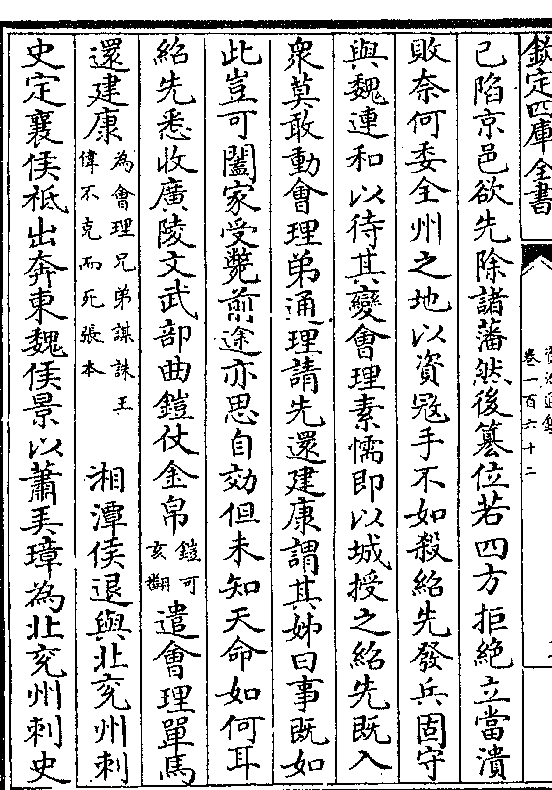 欽定四庫全書
卷一百六十二
已陷京邑欲先除諸藩然後簒位若四方拒絶立當潰
敗奈何委全州之地以資冦手不如殺紹先發兵固守
與魏連和以待其變會理素懦即以城授之紹先既入
衆莫敢動會理弟通理請先還建康謂其姊曰事既如
此豈可闔家受斃前途亦思自効但未知天命如何耳
紹先悉收廣陵文武部曲鎧仗金帛鎧可亥翻遣會理單馬
還建康為會理兄弟謀誅王偉不克而死張本湘潭侯退與北兖州刺
史定襄侯祗出奔東魏侯景以蕭弄璋為北兖州刺史